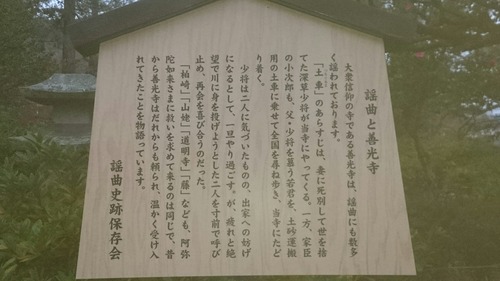 謡曲と善光寺
大衆信仰の寺である善光寺は、謡曲にも数多
く謡われております。
「土車」のあらすじは、妻に死別して世を捨
てた深草少将が当寺にやってくる。一方、家臣
の小次郎も、父・少将を慕う若君を、土砂運搬
用の土車に乗せて全国を尋ね歩き、当寺にたど
り着く。
少将は二人に気づいたものの、出家への妨げ
になるとして、一旦やり過ごす。が、疲れと絶
望で川に身を投げようとした二人を寸前で呼び
止め、再会を喜び合うのだった。
「柏崎」「山姥」「道明寺」「藤」なども、阿弥
陀如来さまに救いを求めて来るのは同じで、昔
から善光寺はだれからも頼られ、温かく受け入
れてきたことを物語っています。
謡曲史跡保存会